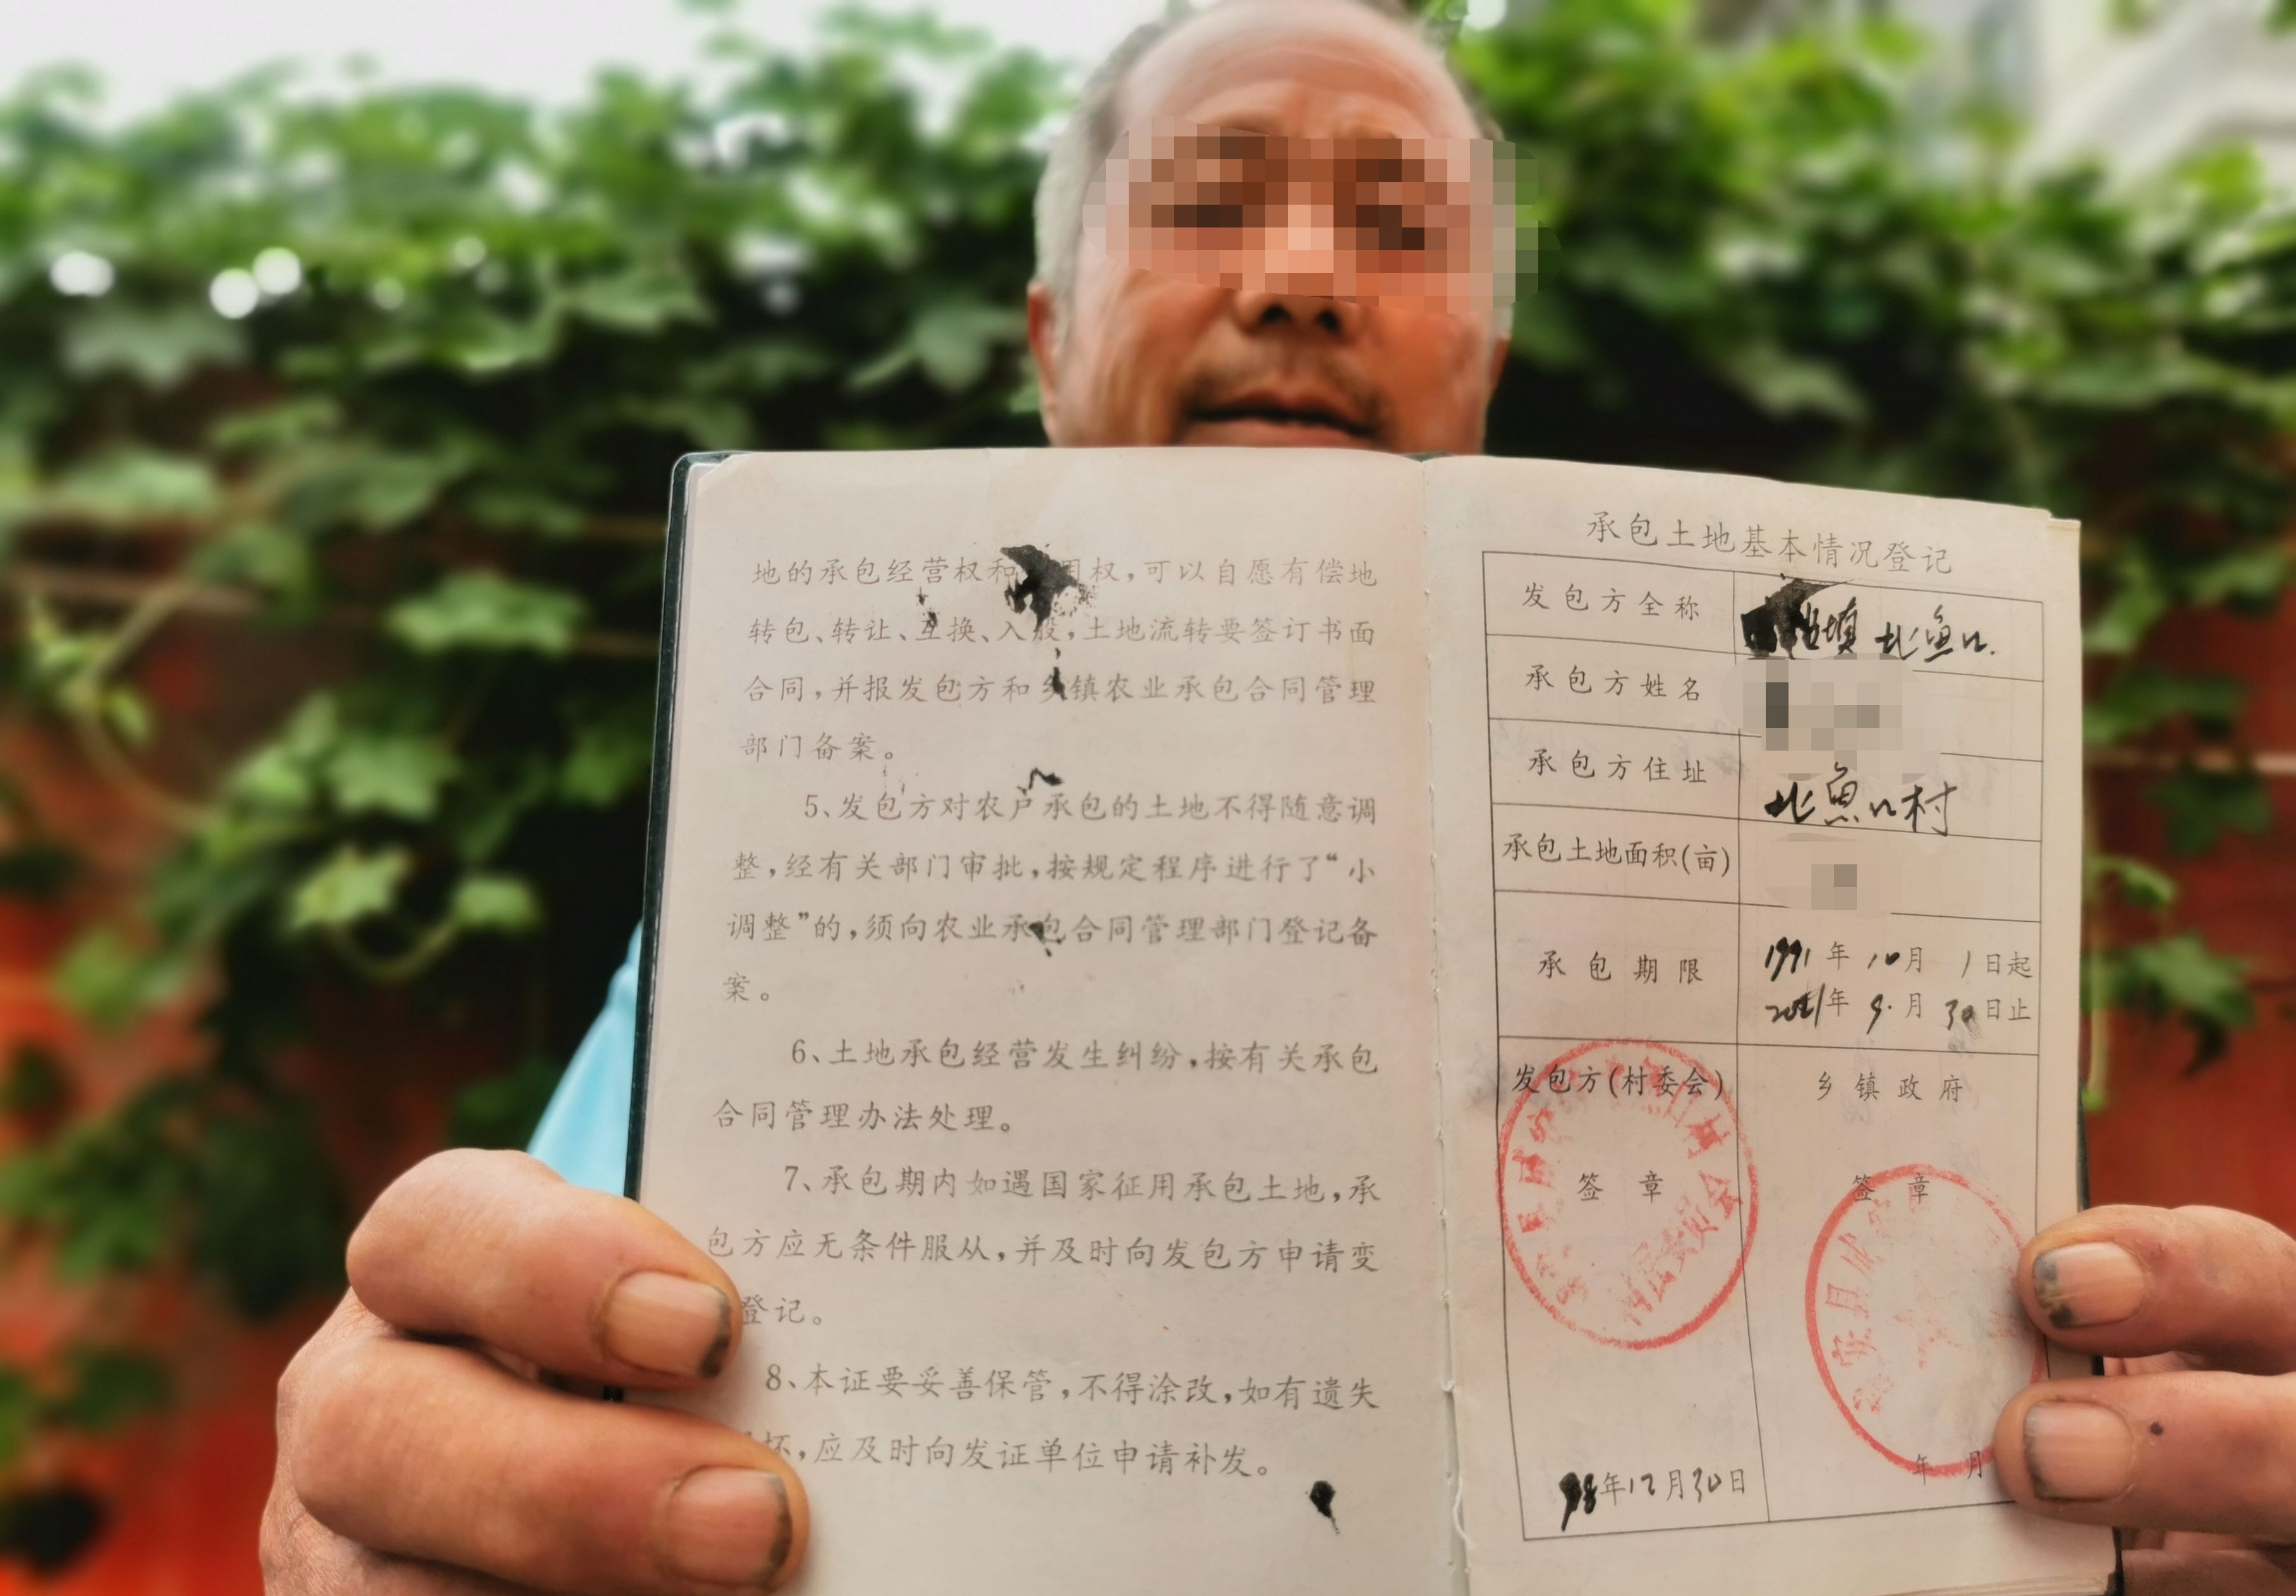 地的承包经营权和用权，可以自愿有偿地
转包、转让、互换、入股，土地流转要签订书面
合同，并报发包方和乡镇农业承包合同管理
部门备案。
5、发包方对农户承包的土地不得随意调
整，经有关部门审批，按规定程序进行了“小
调整”的，须向农业承包合同管理部门登记备
案。
6、土地承包经营发生纠纷，按有关承包
合同管理办法处理。
7、承包期内如遇国家征用承包土地，承
包方应无条件服从，并及时向发包方申请变
登记。
8、本证要妥善保管，不得涂改，如有遗失
坏，应及时向发证单位申请补发。
承包土地基本情况登记
发包方全称 北魚口
承包方姓名
承包方住址 北魚口村
承包土地面积(亩)
承包期限 1991年10月1日起
年9月30日止
发包方(村委会) 乡镇政府
签章 签章
98年12月30日 年月